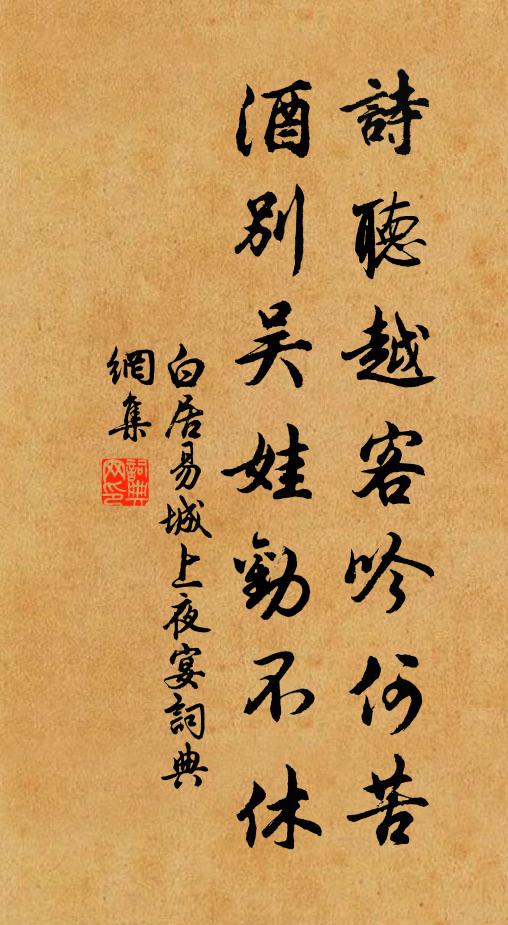 詩聽越客吟何苦
酒別吳娃勸不休
白居易城上夜宴詞典
網集
詞典网印